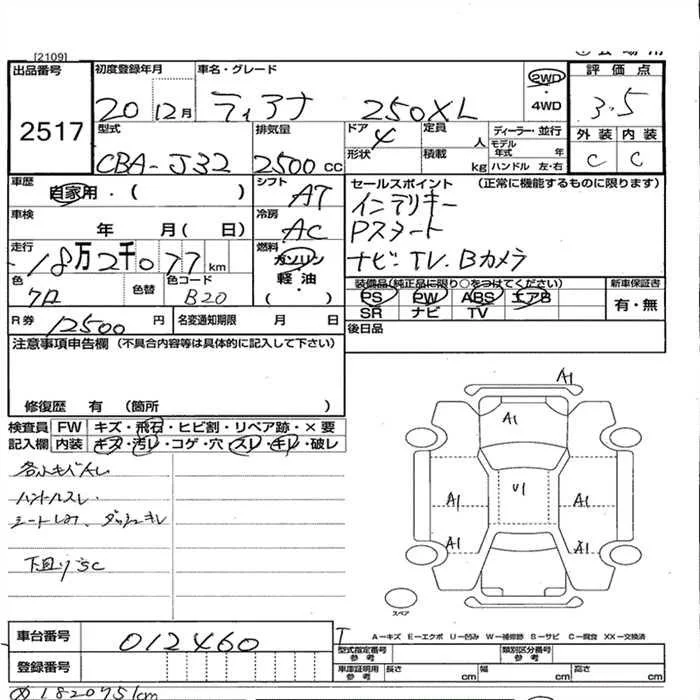 [2109]
出品番号 初度登録年月 車名・グレード 2WD・4WD 評価点
2517 20 12月 ティアナ 250XL 3.5
型式 排気量 ドア 4 定員 人 ディーラー・並行 外装 内装
CBA-J32 2500cc 形状 積載 kg モデル年式 年 ハンドル 左・右 C C
車歴 自家用・( ) シフト AT セールスポイント (正常に機能するものに限ります)
インテリキー
車検 年 月(日) 冷房 AC Pスタート
走行 18万2千077km 燃料 ガソリン 軽油・( ) ナビ TV. Bカメラ
色 クロ 色替 色コード B20 装備品(純正品に限り○をつけてください) 新車保証書
PS PW ABS エアB 有・無
SR ナビ TV
R券 12500円 名変通知期限 月 日 後日品
注意事項申告欄 (不具合内容等は具体的に記入して下さい)
修復歴 有 (箇所 )
検査員記入欄 FW キズ・飛石・ヒビ割・リペア跡・×要
内装 キズ・汚レ・コゲ・穴・スレ・キレ・破レ
ハンドルスレ.
下回りサC
A1
A1
A1 U1 A1
A1 A1
スペア
A−キズ E−エクボ U−凹み W−補修跡 S−サビ C−腐食 XX−交換済
車台番号 012460
型式指定番号 参考 類別区分番号 参考
登録番号 車庫証明用 参考 長さ cm 幅 cm 高さ cm
182075km